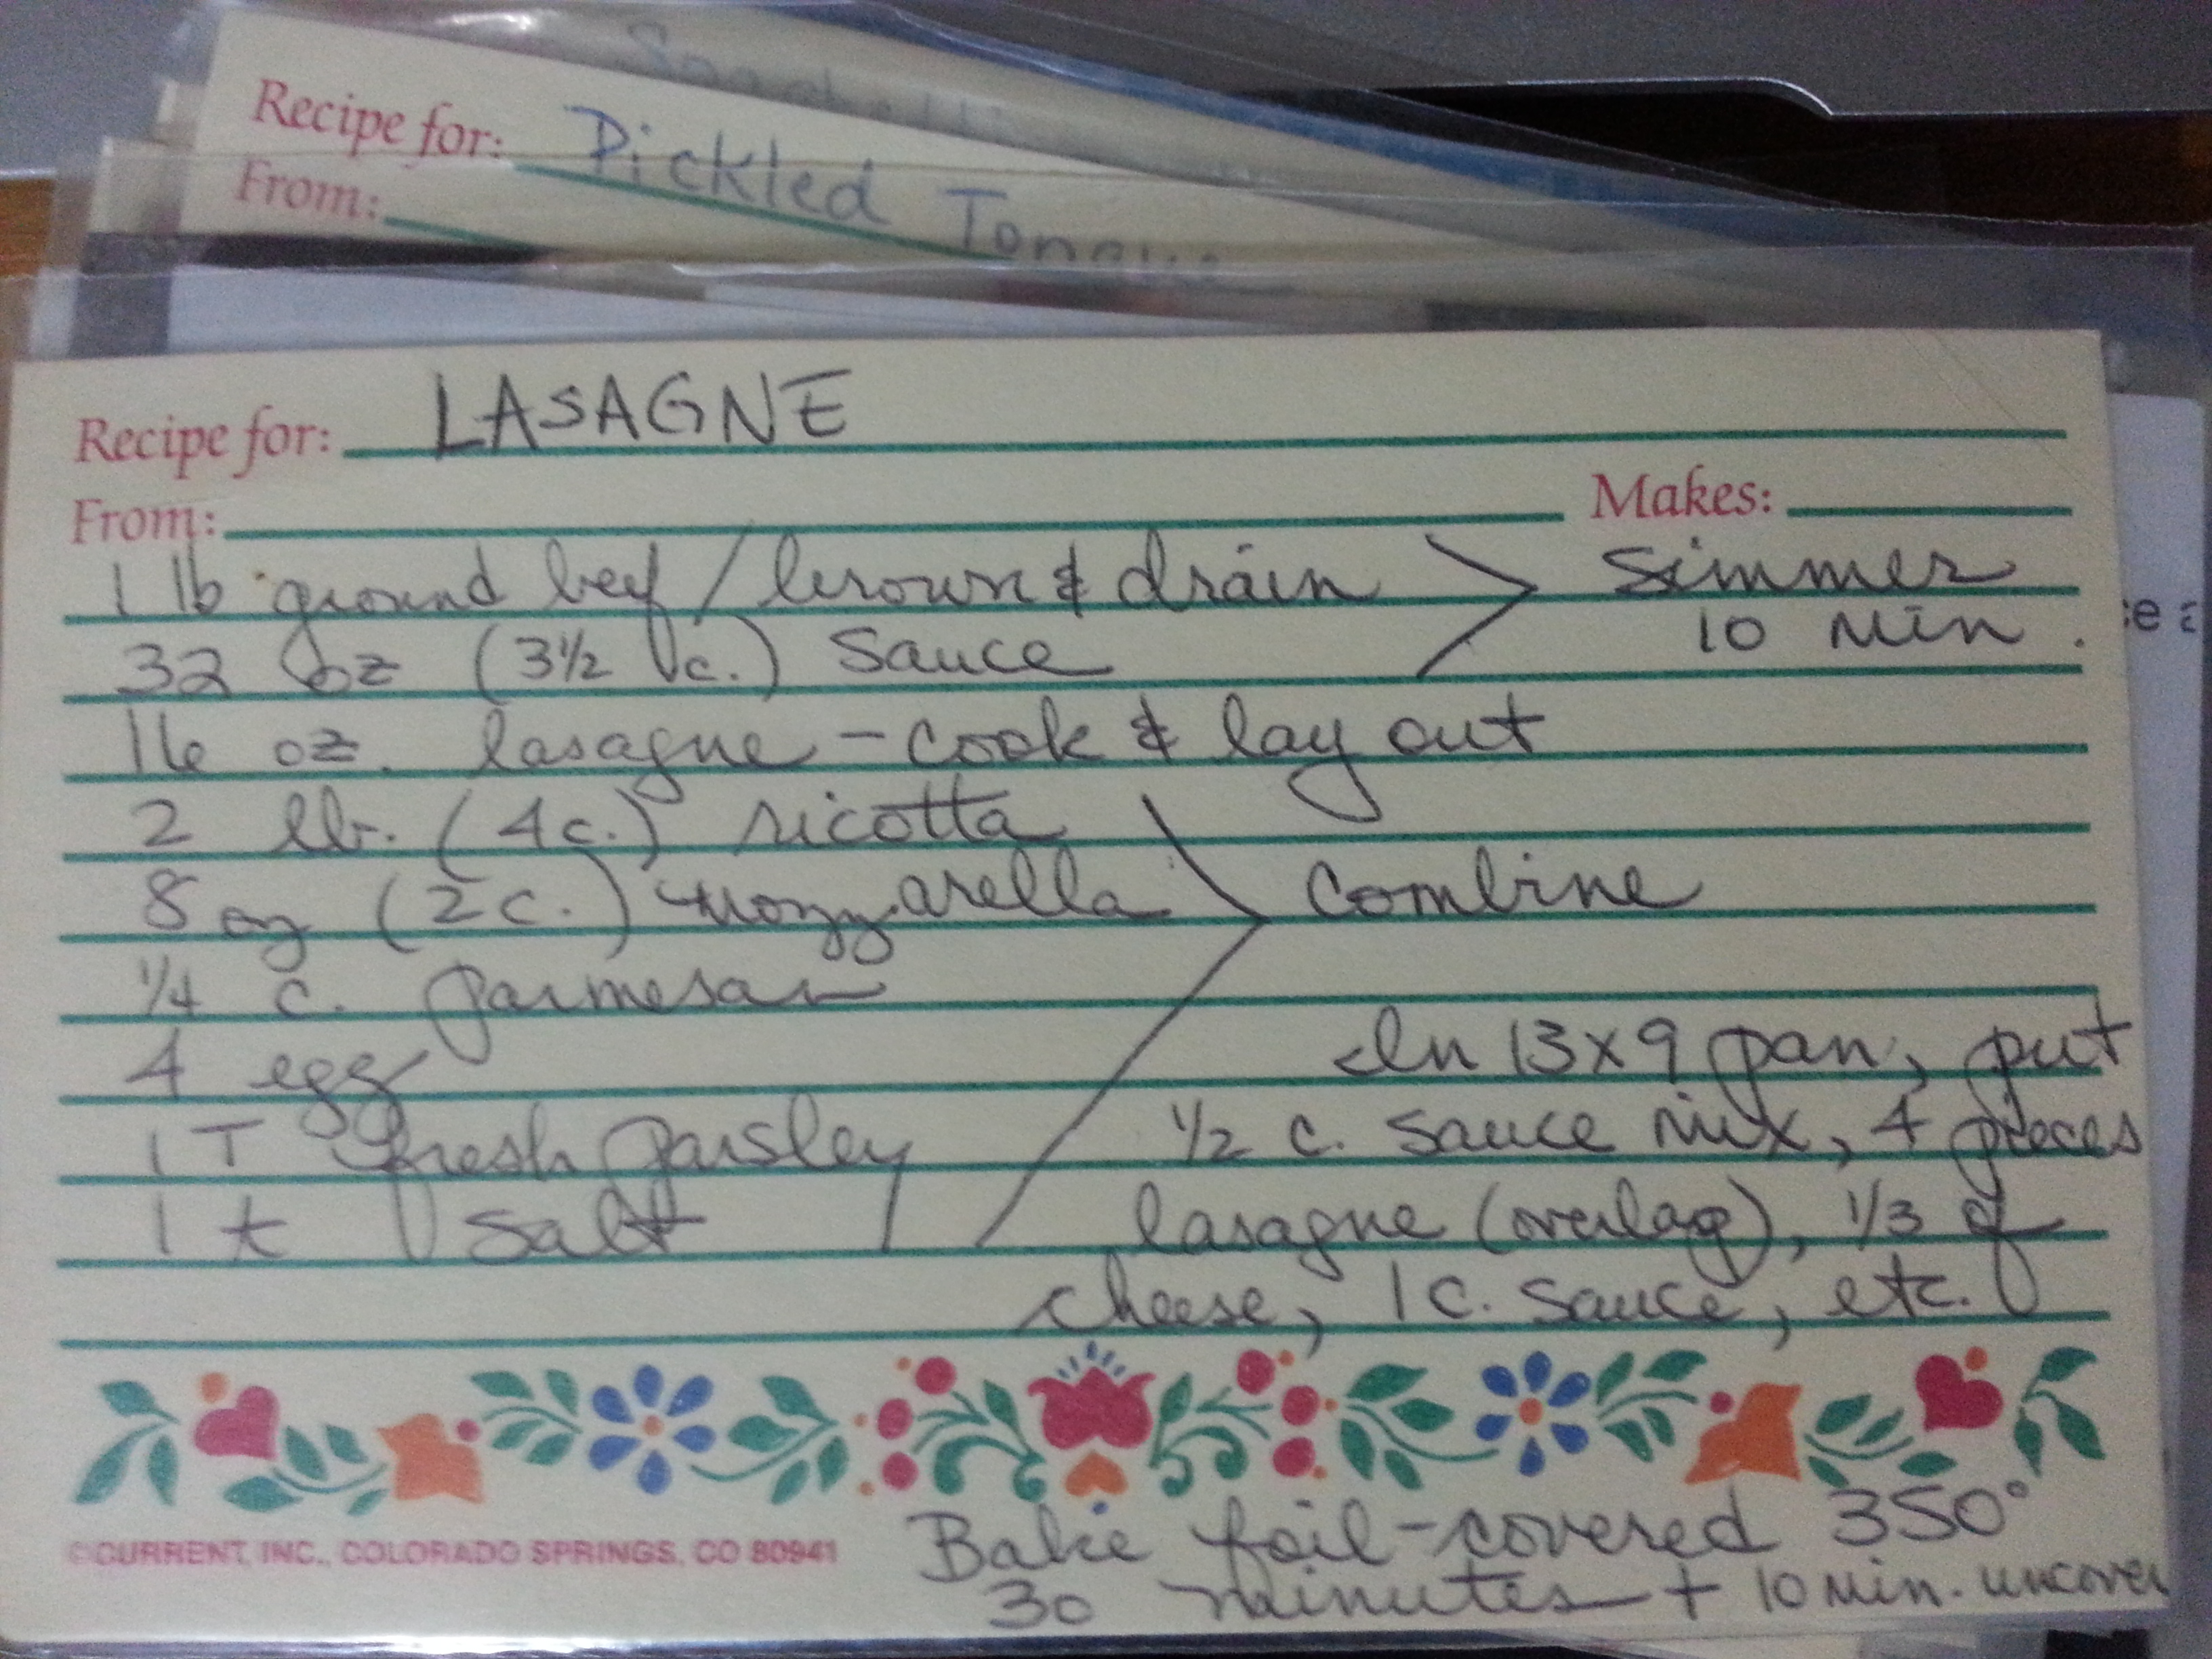 Recipe for: Pickled Tongue
From:
Recipe for: LASAGNE
From: Makes:
1 lb ground beef / brown & drain > Simmer
32 oz (3½ c.) Sauce 10 Min.
16 oz. lasagne - cook & lay out
2 lb. (4c.) ricotta
8 oz (2 c.) mozzarella > Combine
¼ c. parmesan
4 eggs In 13x9 pan, put
1 T fresh parsley ½ c. sauce mix, 4 pieces
1 t salt lasagne (overlap), 1/3 of
cheese, 1 c. sauce, etc.
©CURRENT, INC., COLORADO SPRINGS, CO 80941
Bake foil-covered 350°
30 minutes + 10 Min. uncover